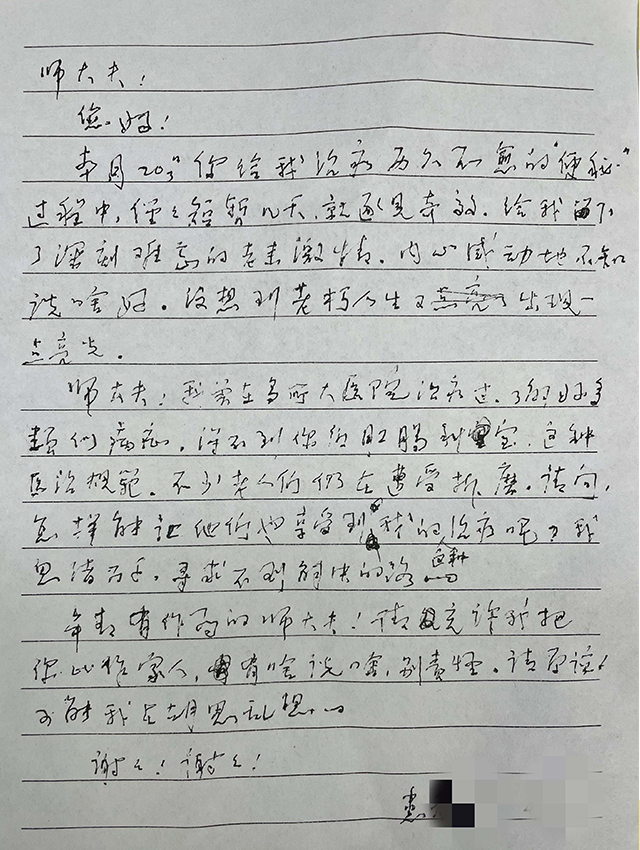 师大夫！
您好！
本月20号你给我治病历久不愈的"便秘"
过程中，仅仅短暂几天，就逐见奇效。给我留下
了深刻难忘的老来激情。内心感动地不知
说啥好。没想到老朽人生又出现一
点亮光。
师大夫！我曾在多所大医院治病过，了解好多
类似病症，得不到你们肛肠科室这种
医治规范。不少老人们仍在遭受折磨。请问，
怎样能让他们也享受到我的治疗呢？我
思绪万千，寻求不到解决的路
年轻有作为的师大夫！请允许我把
你比作家人，有啥说啥，别责怪。请原谅！
可能我在胡思乱想。
谢谢！谢谢！
患